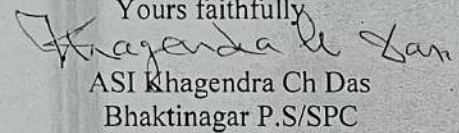 Yours faithfully
Khagendra Ch Das
ASI Khagendra Ch Das
Bhaktinagar P.S/SPC